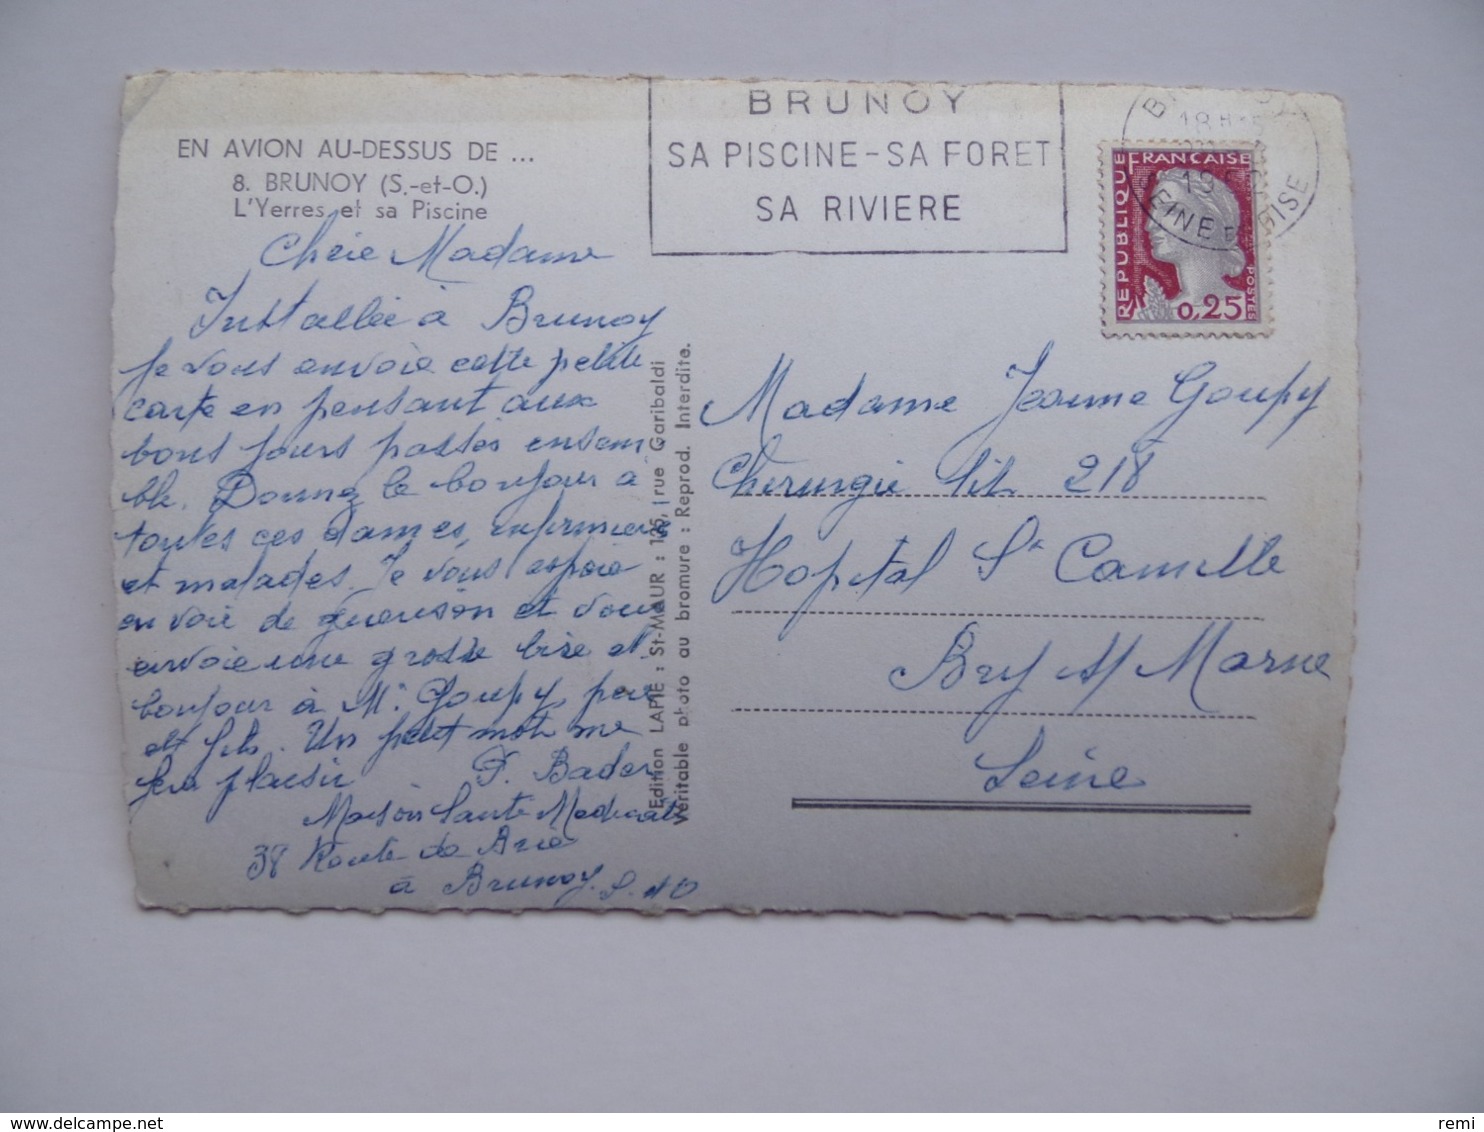 EN AVION AU-DESSUS DE ...
8. BRUNOY (S.-et-O.)
L'Yerres et sa Piscine
BRUNOY
SA PISCINE - SA FORET
SA RIVIERE
18 H
19
SEINE ET OISE
REPUBLIQUE FRANÇAISE
POSTES
0,25
Chère Madame
Installée à Brunoy
je vous envoie cette petite
carte en pensant aux
bons jours passés ensem
ble. Donnez le bonjour à
toutes ces dames, infirmières
et malades. Je vous espère
en voie de guérison et vous
envoie une grosse bise et
bonjour à Mr Goupy, père
et fils. Un petit mot me
fera plaisir P. Bader
Maison Sainte
38 Route de
à Brunoy. S. et O
Edition LAPIE : St-MAUR : 125, rue Garibaldi
Véritable photo au bromure : Reprod. Interdite.
Madame Jeanne Goupy
Chirurgie lit 218
Hopital St Camille
Bry s/ Marne
Seine
remi
https://www.delcampe.net